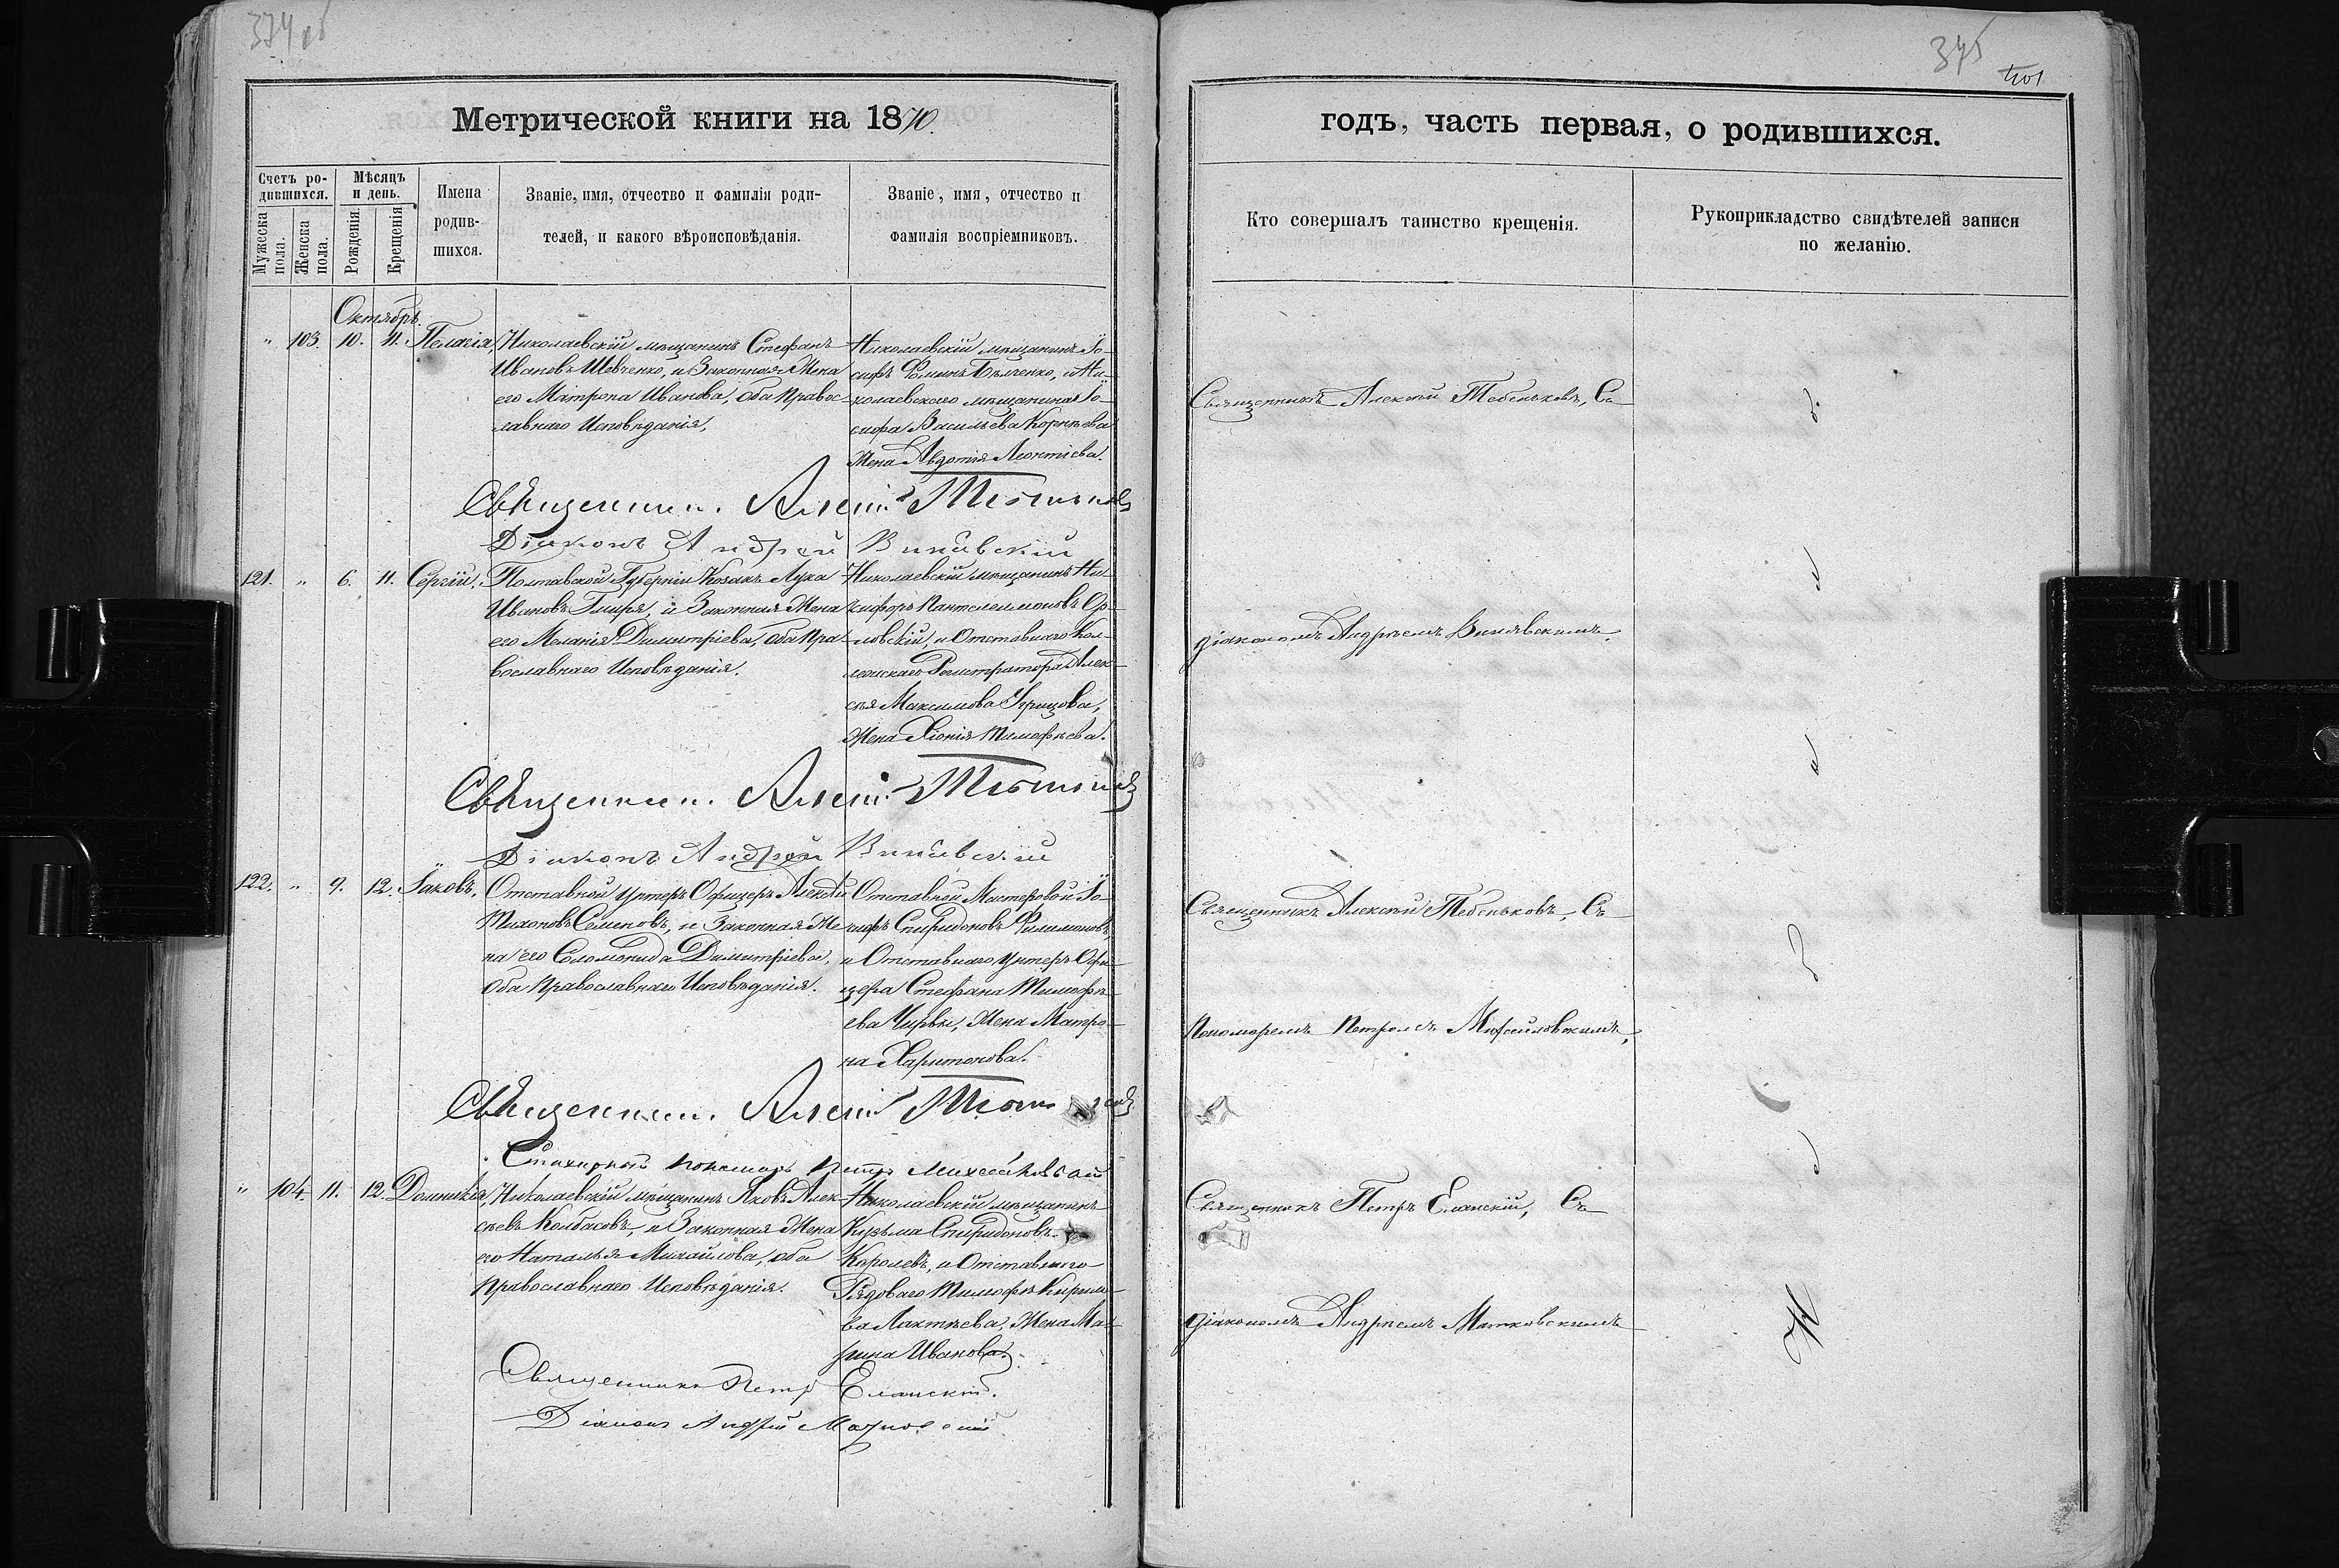 374 об
Метрической книги на 1870.
Счетъ ро-
дившихся.
Мѣсяцъ
и день.
Мужеска
пола.
Женска
пола.
Рожденія.
Крещенія.
Имена
родив-
шихся.
Званіе, имя, отчество и фамилія роди-
телей, и какого вѣроисповѣданія.
Званіе, имя, отчество и
фамилія воспріемниковъ.
Октябрь.
" 103. 10. 11. Пелагія,
Николаевскій мѣщанинъ Стефанъ
Ивановъ Шевченко, и Законная Жена
его Матрона Иванова, оба Правос-
лавнаго Исповѣданія,
Николаевскій мѣщанинъ Іо-
сифъ Ѳоминъ Бѣлченко, и Ни-
колаевскаго мѣщанина Іо-
сифа Васильева Корнѣева
Жена Авдотія Леонтіева.
Священник. Алексій Тебеньковъ
Діаконъ Андрей Винявскій
121. " 6. 11. Сергій,
Полтавской Губерніи Козакъ Лука
Ивановъ Гмиря, и Законная Жена
его Меланія Димитріева, оба Пра-
вославнаго Исповѣданія.
Николаевскій мѣщанинъ Ни-
кифоръ Пантелеимоновъ Ор-
ловскій, и Отставнаго Кол-
лежскаго Регистратора Алек-
сѣя Максимова
Жена Хіонія Тимофѣева.
Священник. Алексій Тебеньковъ
Діаконъ Андрей Винявскій
122. " 9. 12. Іаковъ,
Отставной Унтеръ Офицеръ Алексѣй
Тихоновъ Семеновъ, и Законная Же-
на его Соломонида Димитріева,
оба Православнаго Исповѣданія.
Отставной Мастеровой Іо-
сифъ Спиридоновъ Филимоновъ,
и Отставнаго Унтеръ Офи-
цера Стефана Тимофѣ-
ева Чирвы, Жена Матро-
на Харитонова.
Священник. Алексій
Стихарный Пономарь Петръ Михайловскій
" 104. 11. 12. Домникія,
Николаевскій мѣщанинъ Яковъ Алек-
сѣевъ Колбасовъ, и Законная Жена
его Наталья Михайлова, оба
Православнаго Исповѣданія.
Николаевскій мѣщанинъ
Кузьма Спиридоновъ
Королевъ, и Отставнаго
Рядоваго Тимофѣя Кирил-
ва Лактѣева, Жена Ма-
рина Иванова.
Священникъ Петръ Еланскій.
Діаконъ Андрей Матковскій
375
401
годъ, часть первая, о родившихся.
Кто совершалъ таинство крещенія.
Рукоприкладство свидѣтелей записи
по желанію.
Священникъ Алексѣй Тебеньковъ, Съ
діакономъ Андреемъ Винявскимъ.
Священникъ Алексѣй Тебеньковъ, Съ
Пономаремъ Петромъ Михайловскимъ,
Священникъ Петръ Еланскій, Съ
діакономъ Андреемъ Матковскимъ